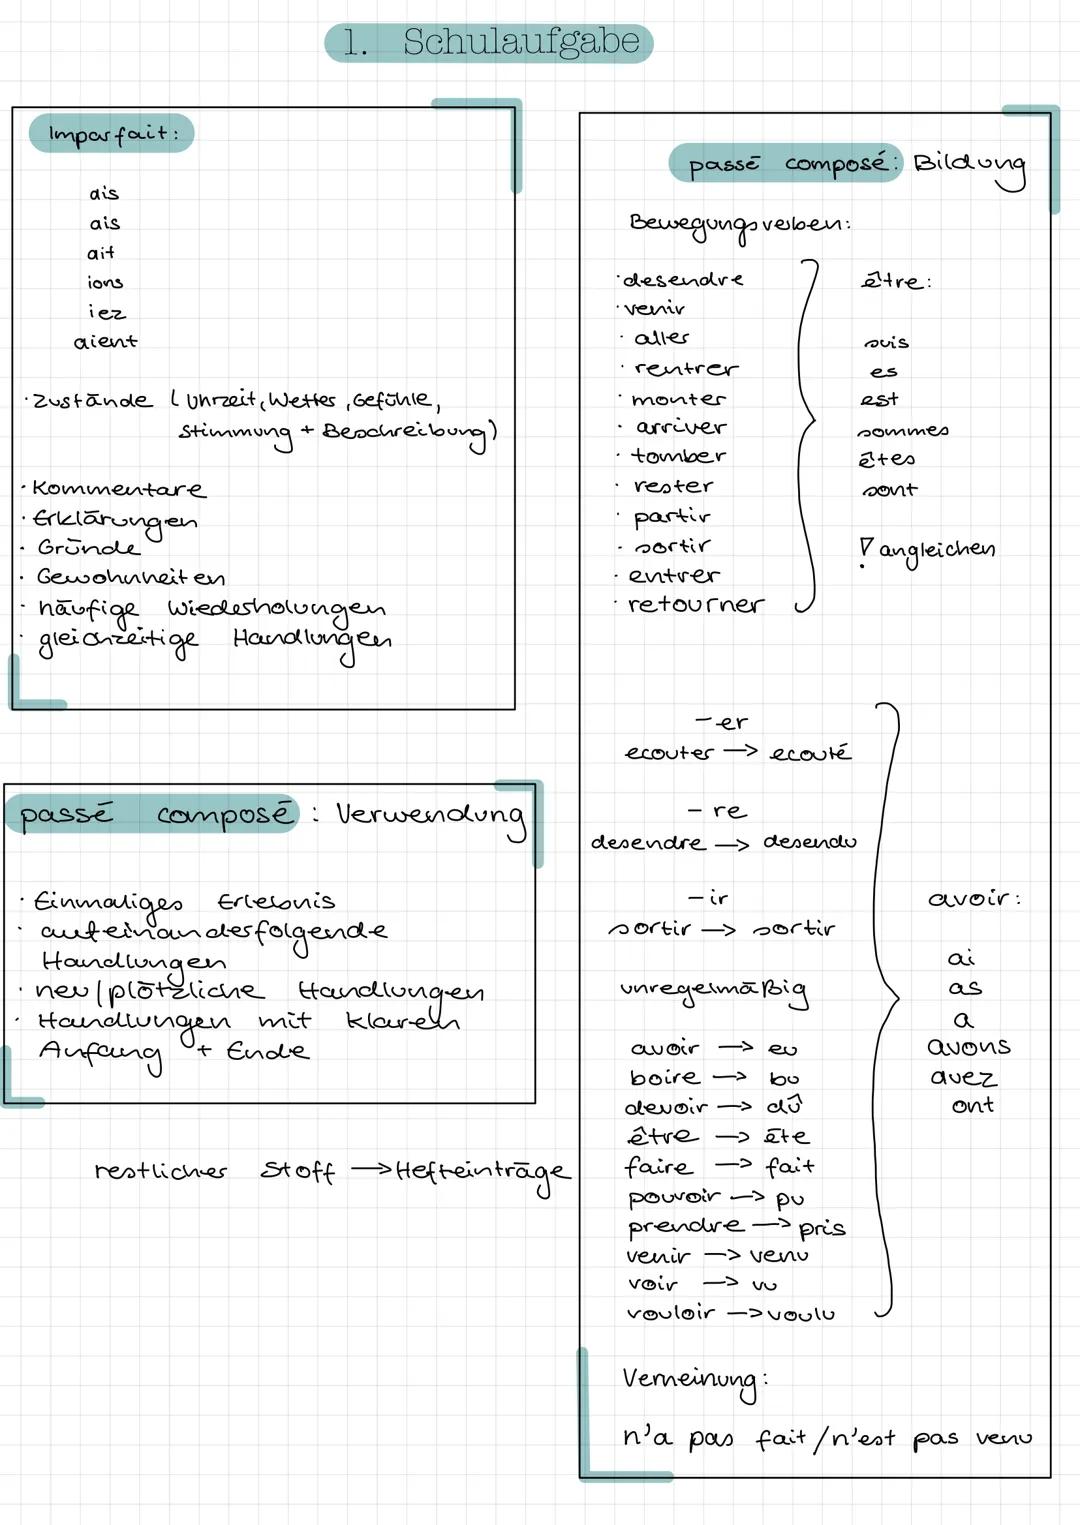 1. Schulaufgabe
Imparfait:
ais
ais
ait
ions
iez
aient
· Zustände (Uhrzeit, Wetter, Gefühle,
Stimmung + Beschreibung)
· Kommentare
· Erklärungen
· Gründe
· Gewohnheiten
· häufige Wiederholungen
· gleichzeitige Handlungen
passé composé : Verwendung
· Einmaliges Erlebnis
· aufeinanderfolgende
Handlungen
· neu/plötzliche Handlungen
· Handlungen mit klarem
Anfang + Ende
restlicher Stoff → Hefteinträge
passé composé: Bildung
Bewegungsverben:
· desendre
· venir
· aller
· rentrer
· monter
· arriver
· tomber
· rester
· partir
· sortir
· entrer
· retourner
être:
suis
es
est
sommes
êtes
sont
! angleichen
-er
ecouter → ecouté
- re
desendre → desendu
- ir
sortir → sortir
unregelmäßig
avoir → eu
boire → bu
devoir → dû
être → éte
faire → fait
pouvoir → pu
prendre → pris
venir → venu
voir → vu
vouloir → voulu
avoir:
ai
as
a
avons
avez
ont
Verneinung:
n'a pas fait / n'est pas venu